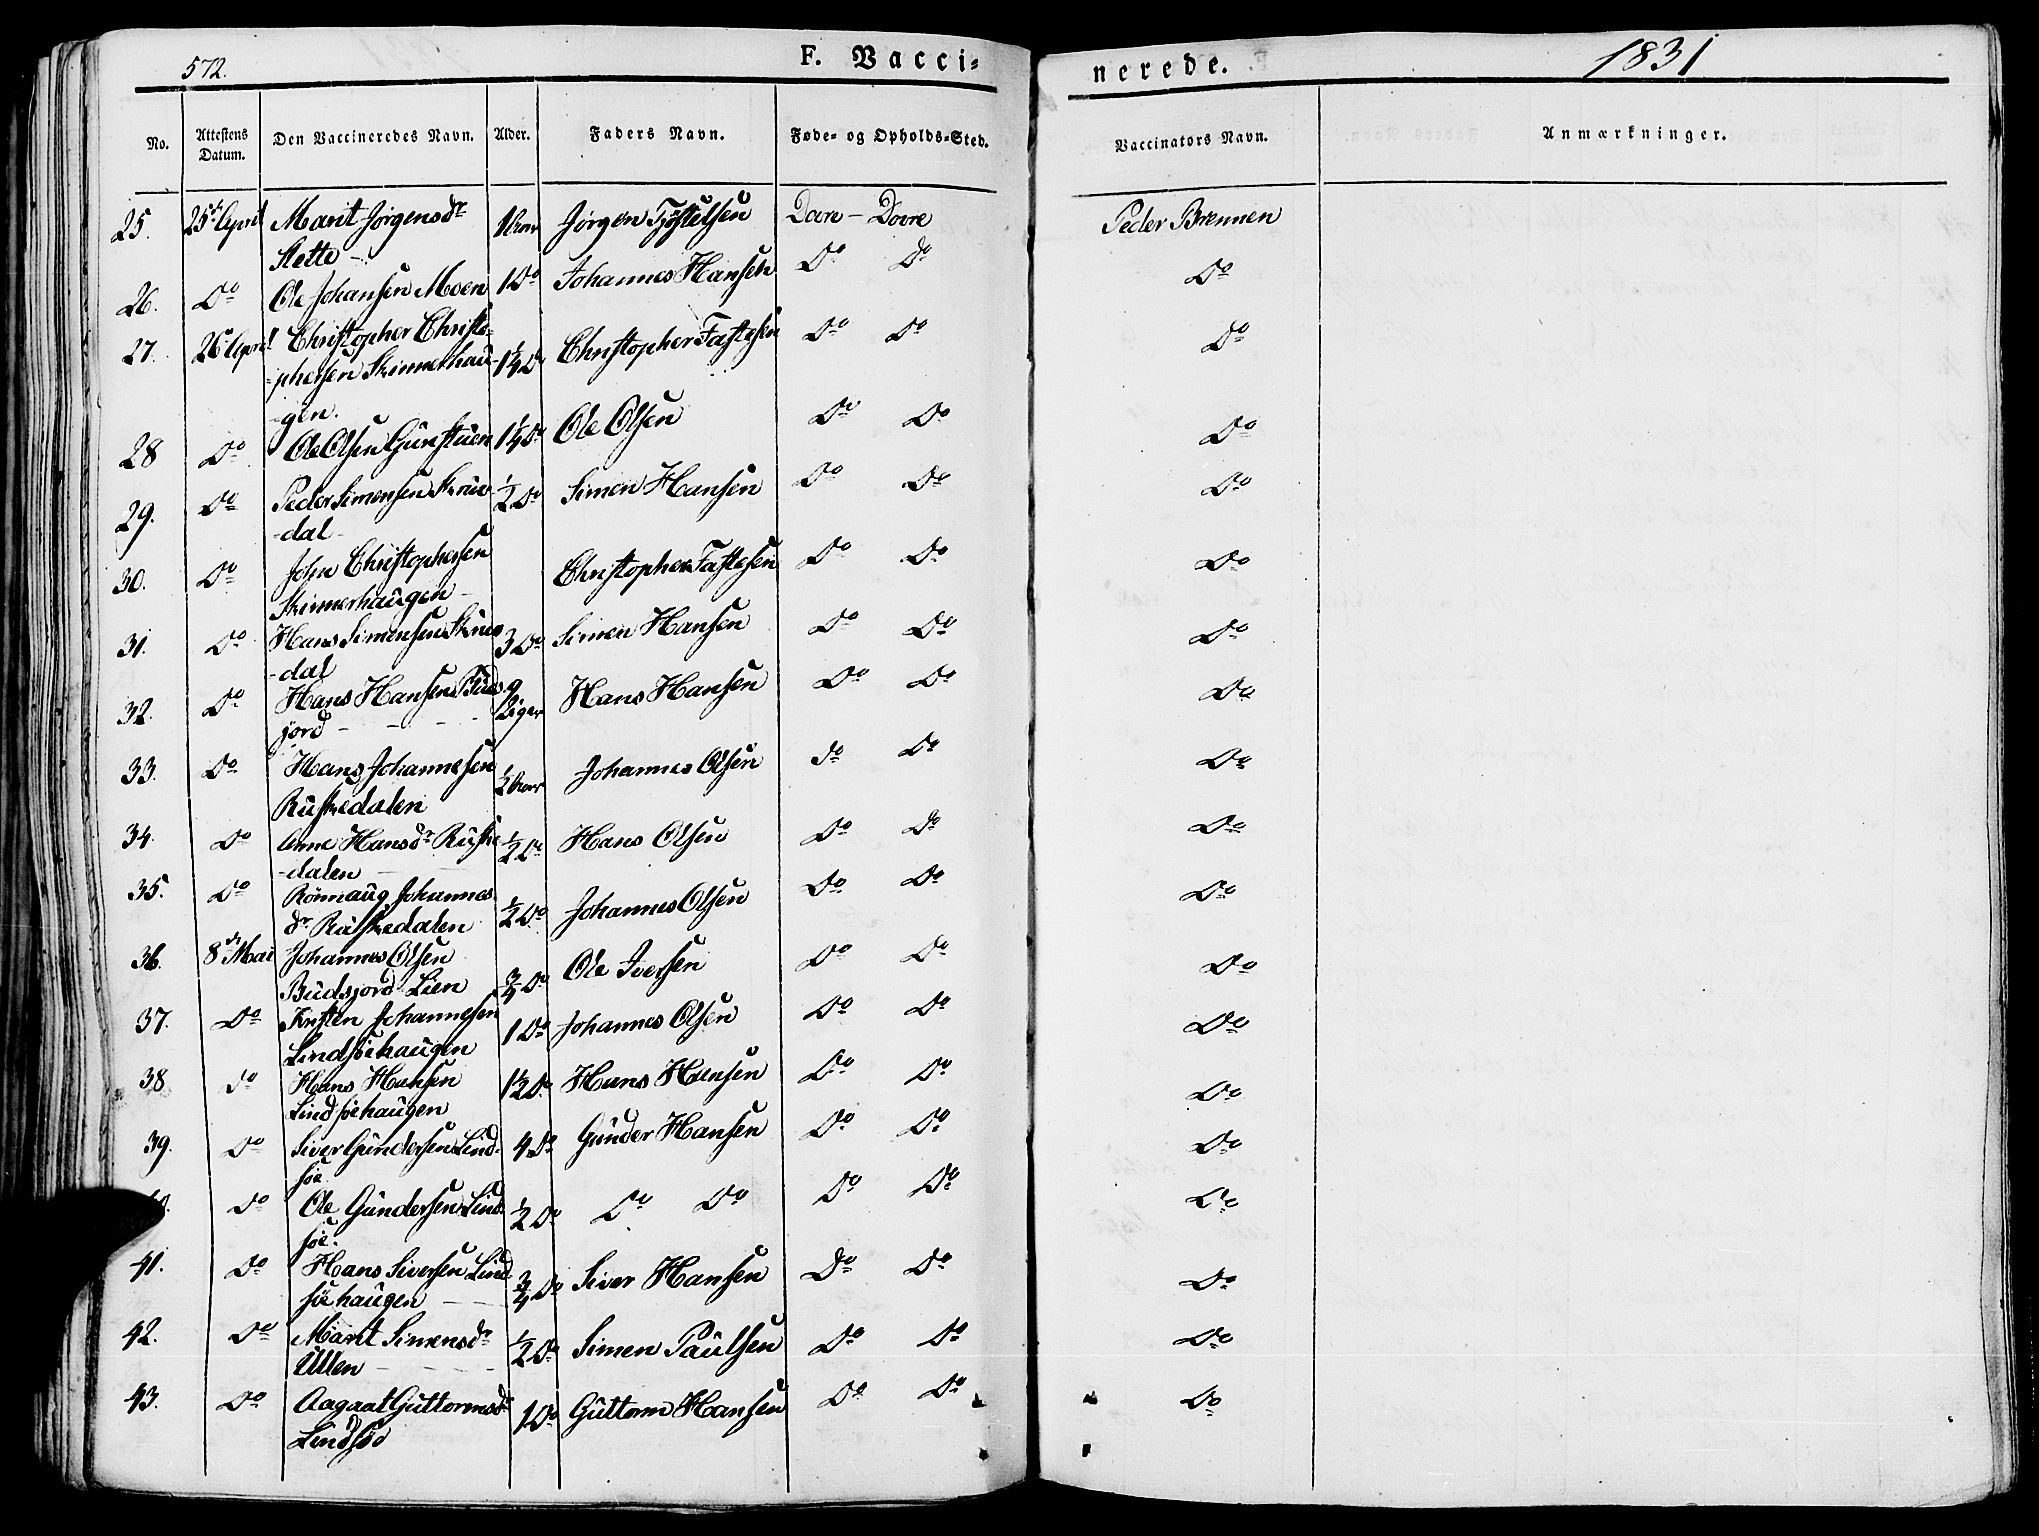 572.
F. Vacci=
nerede.
1831
No. Attestens Datum. Den Vaccineredes Navn. Alder. Faders Navn. Føde= og Opholds=Sted. Vaccinators Navn. Anmærkninger.
25. 25de April Marit Jörgensdr 1 Aar Jörgen Tjöstelsen Dovre - Dovre Peder Brennen
Slette -
26. Do Ole Johansen Moen 1 Do Johannes Hansen Do Do Do
27. 26 April Christopher Christo- 1¼ Do Christopher Fastesen Do Do Do
-phersen Skinnerhau-
-gen.
28 Do Ole Olsen Gunstuen 1¼ Do Ole Olsen Do Do Do
29. Do Peder Simensen Skrue- ½ Do Simen Hansen Do Do Do
-dal -
30. Do John Christophersen Christopher Fastesen Do Do Do
Skinnerhaugen -
31. Do Hans Simensen Skrue- 3 Do Simen Hansen Do Do Do
-dal
32. Do Hans Hansen Buds- 9 Uger Hans Hansen Do Do Do
jord - - - -
33. Do Hans Johannesen ½ Aar Johannes Olsen do Do Do
Rustedalen
34. Do Anne Hansdr Ruste ½ Do Hans Olsen Do Do Do
-dalen -
35. Do Rönnaug Johannes- ½ Do Johannes Olsen Do Do Do
dr Rustedalen
36. 8de Mai Johannes Olsen ¾ Do Ole Iversen Do Do Do
Budsjord Lien
37. Do Kristen Johannesen 1 Do Johannes Olsen Do Do Do
Lindsöehaugen
38 do Hans Hansen 1½ Do Hans Hansen Do Do Do
Lindsöehaugen
39. Do Siver Gundersen Lind- 4 Do Gunder Hansen Do Do Do
söe
0. Do Ole Gundersen Lind- ½ Do Do Do Do Do Do
söe.
41. Do Hans Siversen Lind- ¾ Do Siver Hansen Do Do Do
söehaugen - -
42. Do Marit Simensdr ½ Do Simen Paulsen Do Do Do
Ullen - - - -
43. Do Aagaat Guttormsdr 1 Do Guttorm Hansen Do Do Do
Lindsöe